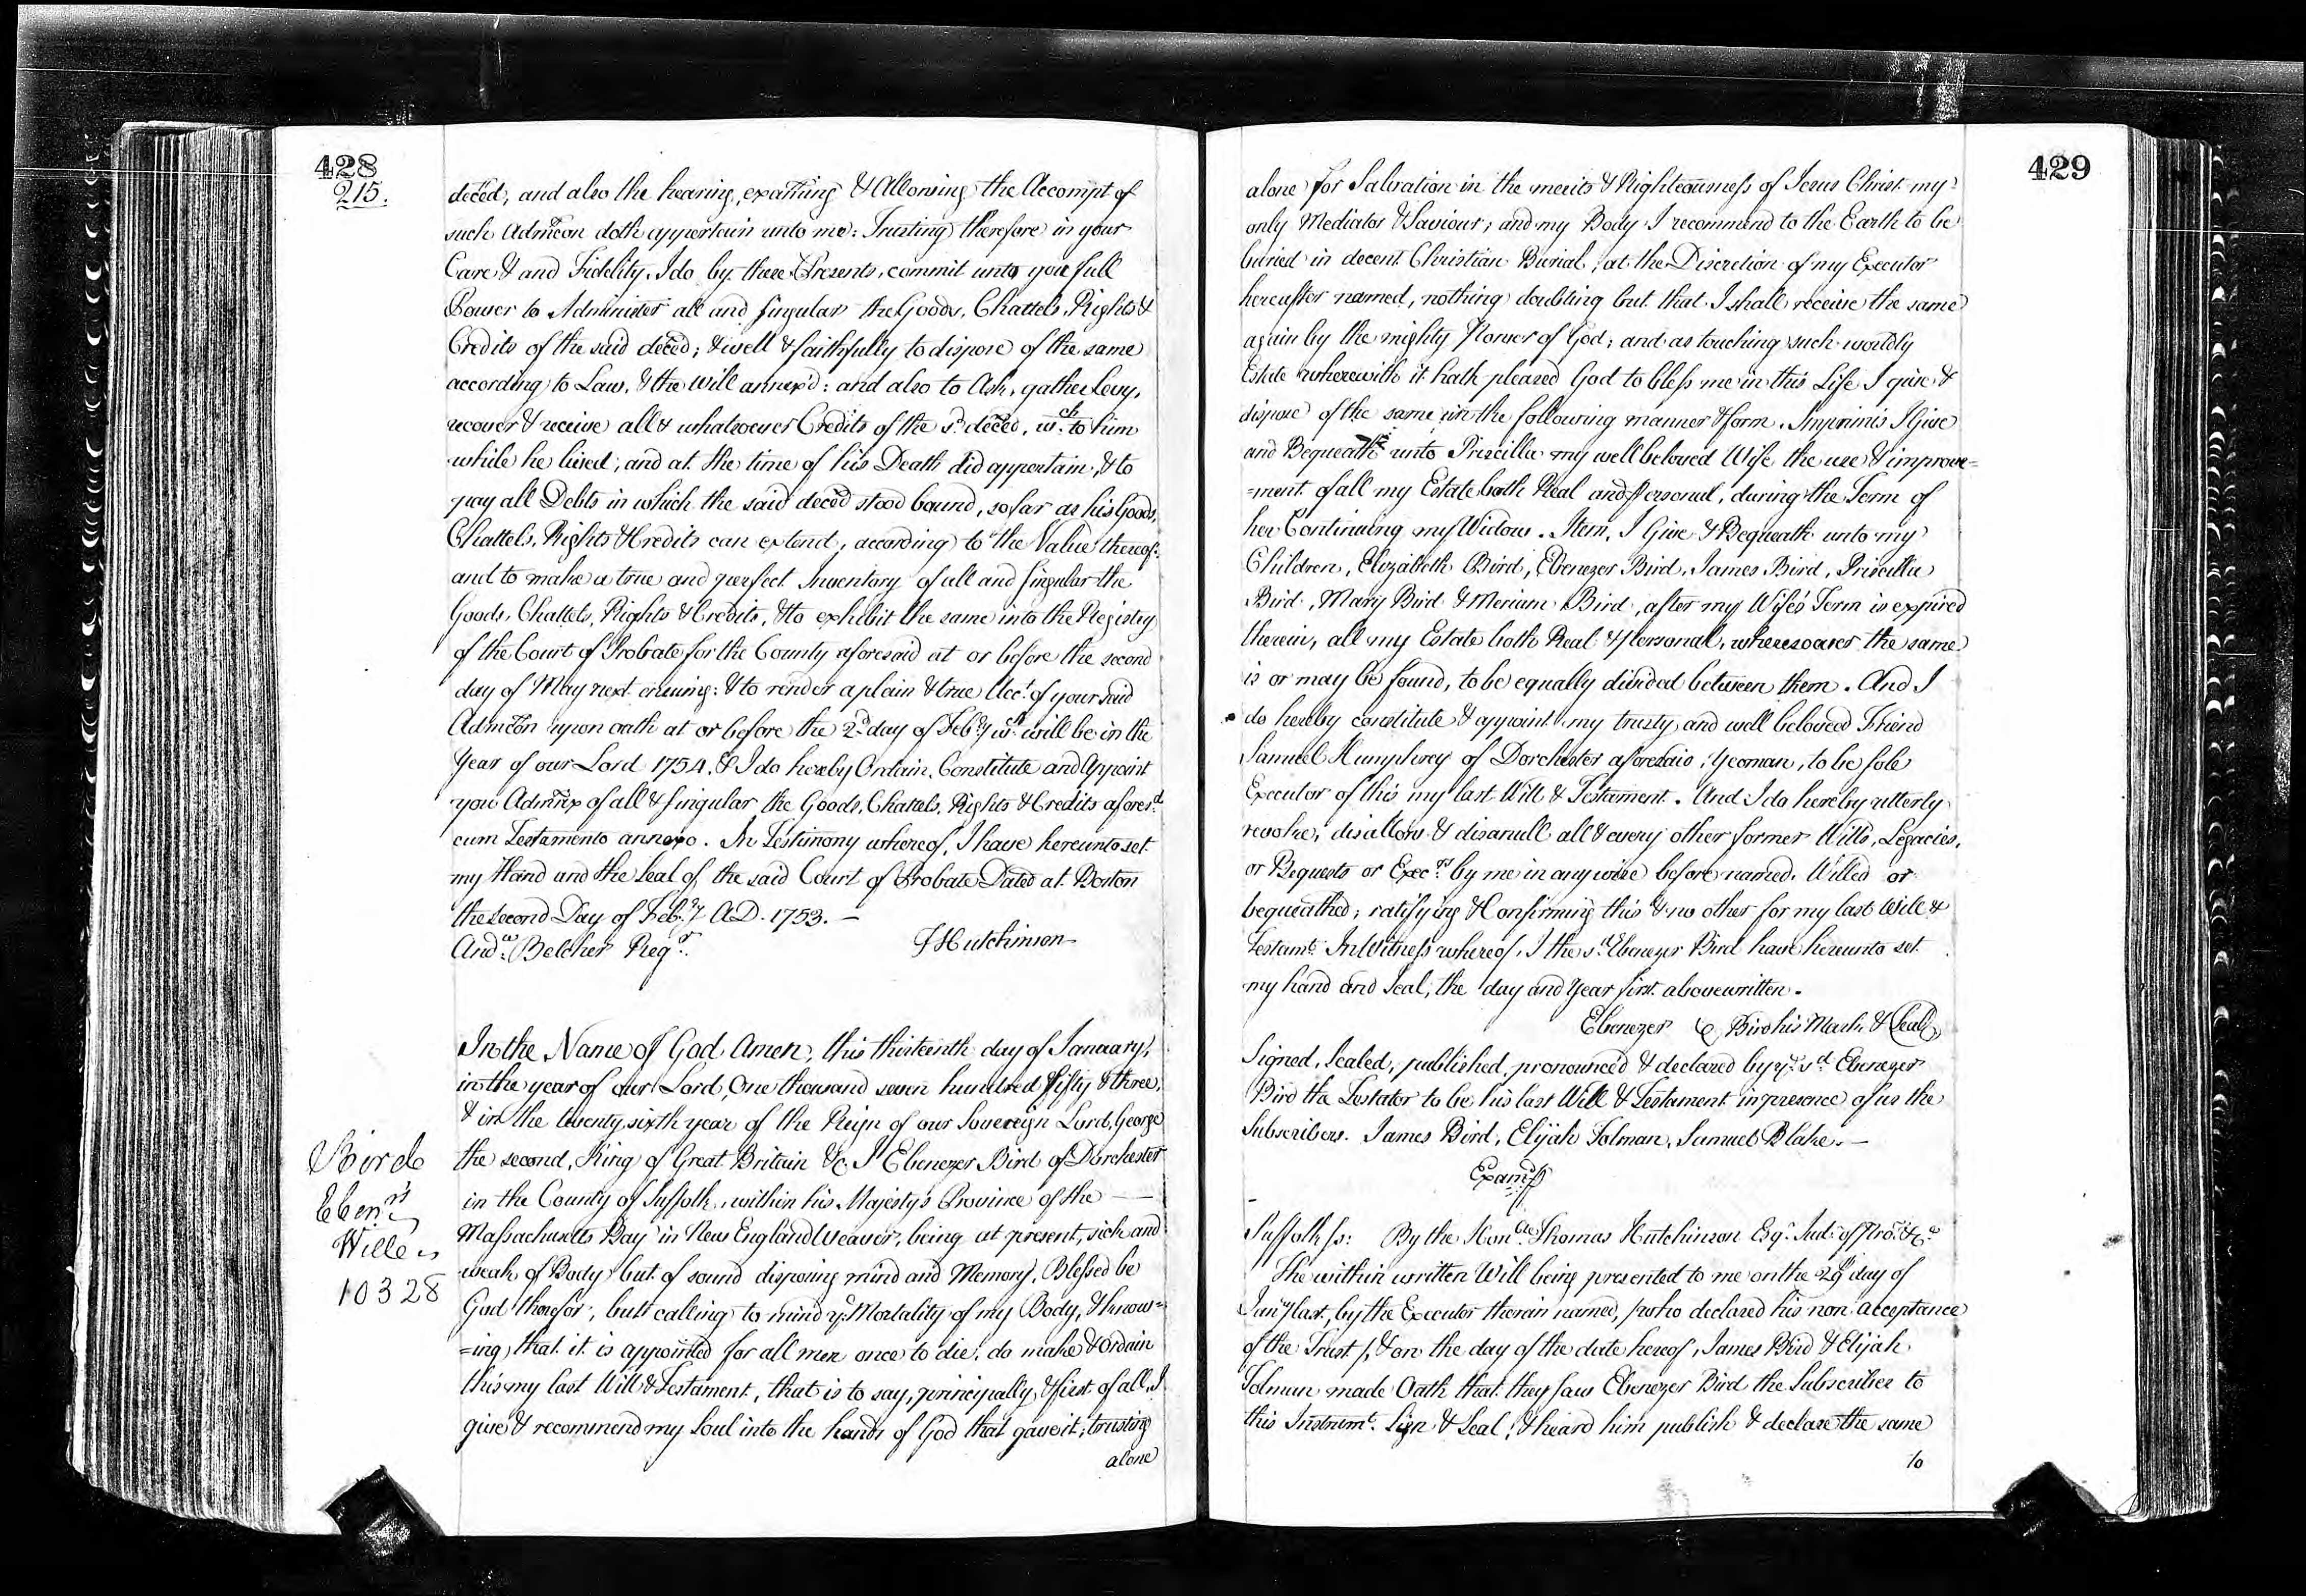 428
215.
deced, and also the hearing, examing & Allowing the Accompt of
such Admcon doth appertain unto me: Trusting therefore in your
Care & and Fidelity, I do by these Presents, commit unto you full
Power to Administer all and singular the Goods, Chattels, Rights &
Credits of the said deced; & well & faithfully to dispose of the same
according to Law, & the Will annex'd: and also to Ask, gather Levy,
recover & receive all & whatsoever Credits of the sd. deced, wch. to him
while he lived, and at the time of his Death did appertain, & to
pay all Debts in which the said deced stood bound, so far as his Goods,
Chattels, Rights & Credits can extend, according to the Value thereof:
and to make a true and perfect Inventory of all and singular the
Goods, Chattels, Rights & Credits, & to exhibit the same into the Registry
of the Court of Probate for the County aforesaid at or before the second
day of May next ensuing: & to render a plain & true Acct. of your said
Admcon upon oath at or before the 2d. day of Feby. wch. will be in the
Year of our Lord 1754. & I do hereby Ordain, Constitute and Appoint
you Admrix of all & singular the Goods, Chattels, Rights & Credits aforesd.
cum Testamento annexo. In Testimony whereof, I have hereunto set
my Hand and the Seal of the said Court of Probate Dated at Boston
the second Day of Feb.ry A.D. 1753. —
Andw. Belcher Regr. T Hutchinson
In the Name of God Amen, this thirteenth day of January,
in the year of our Lord, One thousand seven hundred fifty & three,
& in the twenty sixth year of the Reign of our Sovereign Lord, George
Birds
Ebenrs
Will
10328
the second, King of Great Britain &c. I Ebenezer Bird of Dorchester
in the County of Suffolk, within his Majesty's Province of the —
Massachusetts Bay in New England Weaver, being at present, sick and
weak of Body but of sound disposing mind and Memory, Blessed be
God therefor, but calling to mind ye Mortality of my Body, & know=
=ing, that it is appointed for all men once to die, do make & Ordain
this my last Will & Testament, that is to say, principally, & first of all, I
give & recommend my Soul into the hands of God that gave it; trusting
alone
429
alone for Salvation in the merits & Righteousness of Jesus Christ my
only Mediator & Saviour; and my Body I recommend to the Earth to be
buried in decent Christian Burial, at the Discretion of my Executor
hereafter named, nothing doubting but that I shall receive the same
again by the mighty Power of God; and as touching such worldly
Estate wherewith it hath pleased God to bless me in this Life I give &
dispose of the same in the following manner & form. Imprimis I Give
and Bequeath unto Priscilla my well beloved Wife the use & improve=
=ment of all my Estate both Real and personal, during the Term of
her Continuing my Widow. Item, I Give & Bequeath unto my
Children, Elizabeth Bird, Ebenezer Bird, James Bird, Priscilla
Bird, Mary Bird & Meriam Bird, after my Wife's Term is expired
therein, all my Estate both Real & Personal, wheresoever the same
is or may be found, to be equally divided between them. And I
do hereby constitute & appoint my trusty and well beloved Friend
Samuel Humphrey of Dorchester aforesaid, Yeoman, to be sole
Executor of this my last Will & Testament. And I do hereby utterly
revoke, disallow & disanull all & every other former Wills, Legacies,
or Bequests or Execrs. by me in any wise before named, Willed or
bequeathed; ratifying & Confirming this & no other for my last Will &
Testamt. In Witness whereof, I the sd. Ebenezer Bird have hereunto set
my hand and Seal, the day and Year first abovewritten.
Ebenezer Bird his Mark & (Seal)
Signed, Sealed, published, pronounced & declared by ye. sd. Ebenezer
Bird the Testator to be his last Will & Testament in presence of us the
Subscribers. James Bird, Elijah Tolman, Samuel Blake. —
Examd
Suffolk ss: By the Honble. Thomas Hutchinson Esqr. Jud: of Pro: &c.
The within written Will being presented to me on the 29th day of
Jany last, by the Executor therein named, /who declared his non acceptance
of the Trust /, & on the day of the date hereof, James Bird & Elijah
Tolman made Oath that they saw Ebenezer Bird the Subscriber to
this Instrumt. Sign & Seal, & heard him publish & declare the same
to